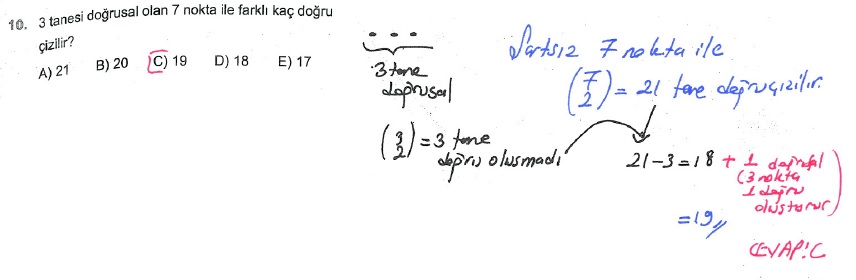 10. 3 tanesi doğrusal olan 7 nokta ile farklı kaç doğru
çizilir?
A) 21 B) 20 C) 19 D) 18 E) 17
3 tane
doğrusal
(3 2) = 3 tane
doğru oluşmadı
Şartsız 7 nokta ile
(7 2) = 21 tane doğru çizilir.
21-3=18 + 1 doğrusal
(3 nokta
1 doğru
oluşturur)
=19,,
CEVAP: C